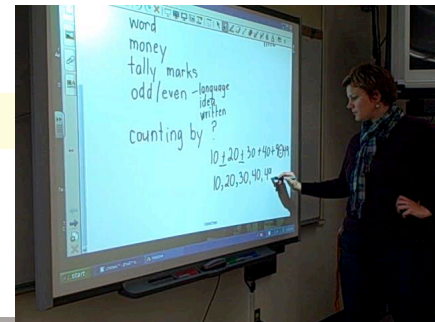 word
money
tally marks
odd/even - language
idea
written
counting by ?
10 + 20 + 30 + 40 +
10, 20, 30, 40, 4
start